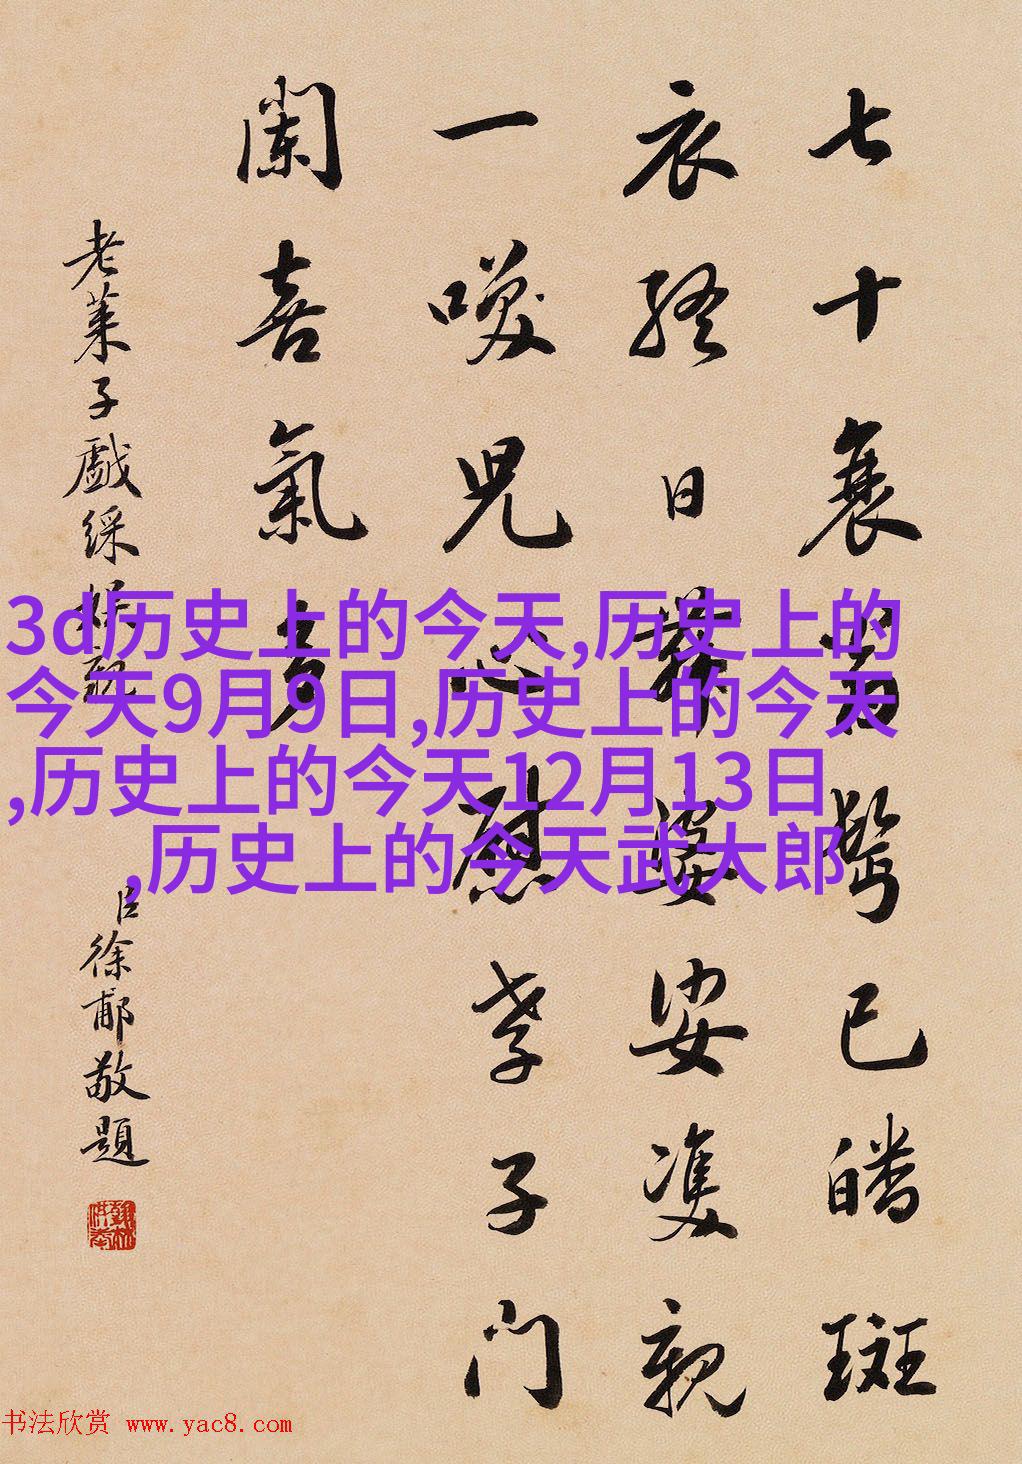 七十衰鬢已皤斑
衣終日舞婆娑雙親
一咲児心慰孝子门
闌喜氣多
老莱子戲綵娱親
臣徐郙敬題
3d历史上的今天,历史上的
今天9月9日,历史上的今天
,历史上的今天12月13日
,历史上的今天武大郎
书法欣赏 www.yac8.com